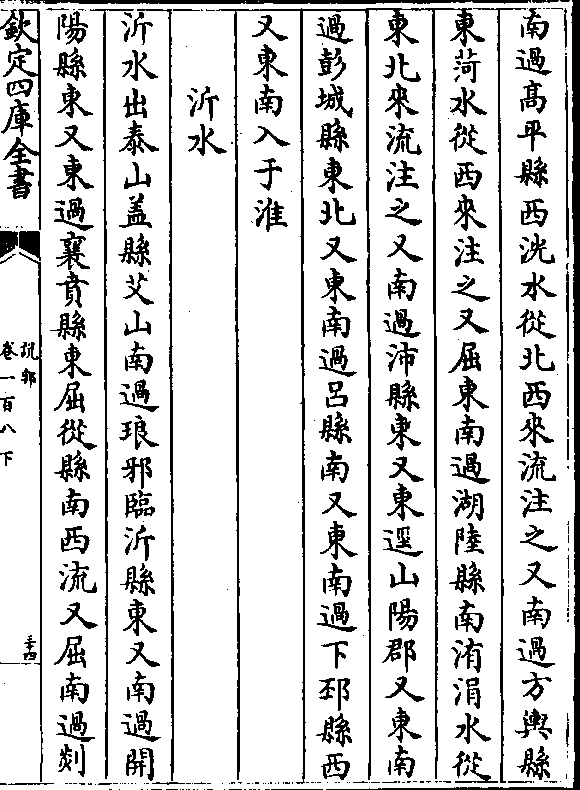 南過高平縣西洸水從北西來流注之又南過方輿縣
東菏水從西來注之又屈東南過湖陸縣南洧涓水從
東北來流注之又南過沛縣東又東逕山陽郡又東南
過彭城縣東北又東南過呂縣南又東南過下邳縣西
又東南入于淮
沂水
沂水出泰山盖縣艾山南過琅邪臨沂縣東又南過開
陽縣東又東過襄賁縣東屈從縣南西流又屈南過剡
欽定四庫全書
說郛
卷一百八下
三十四